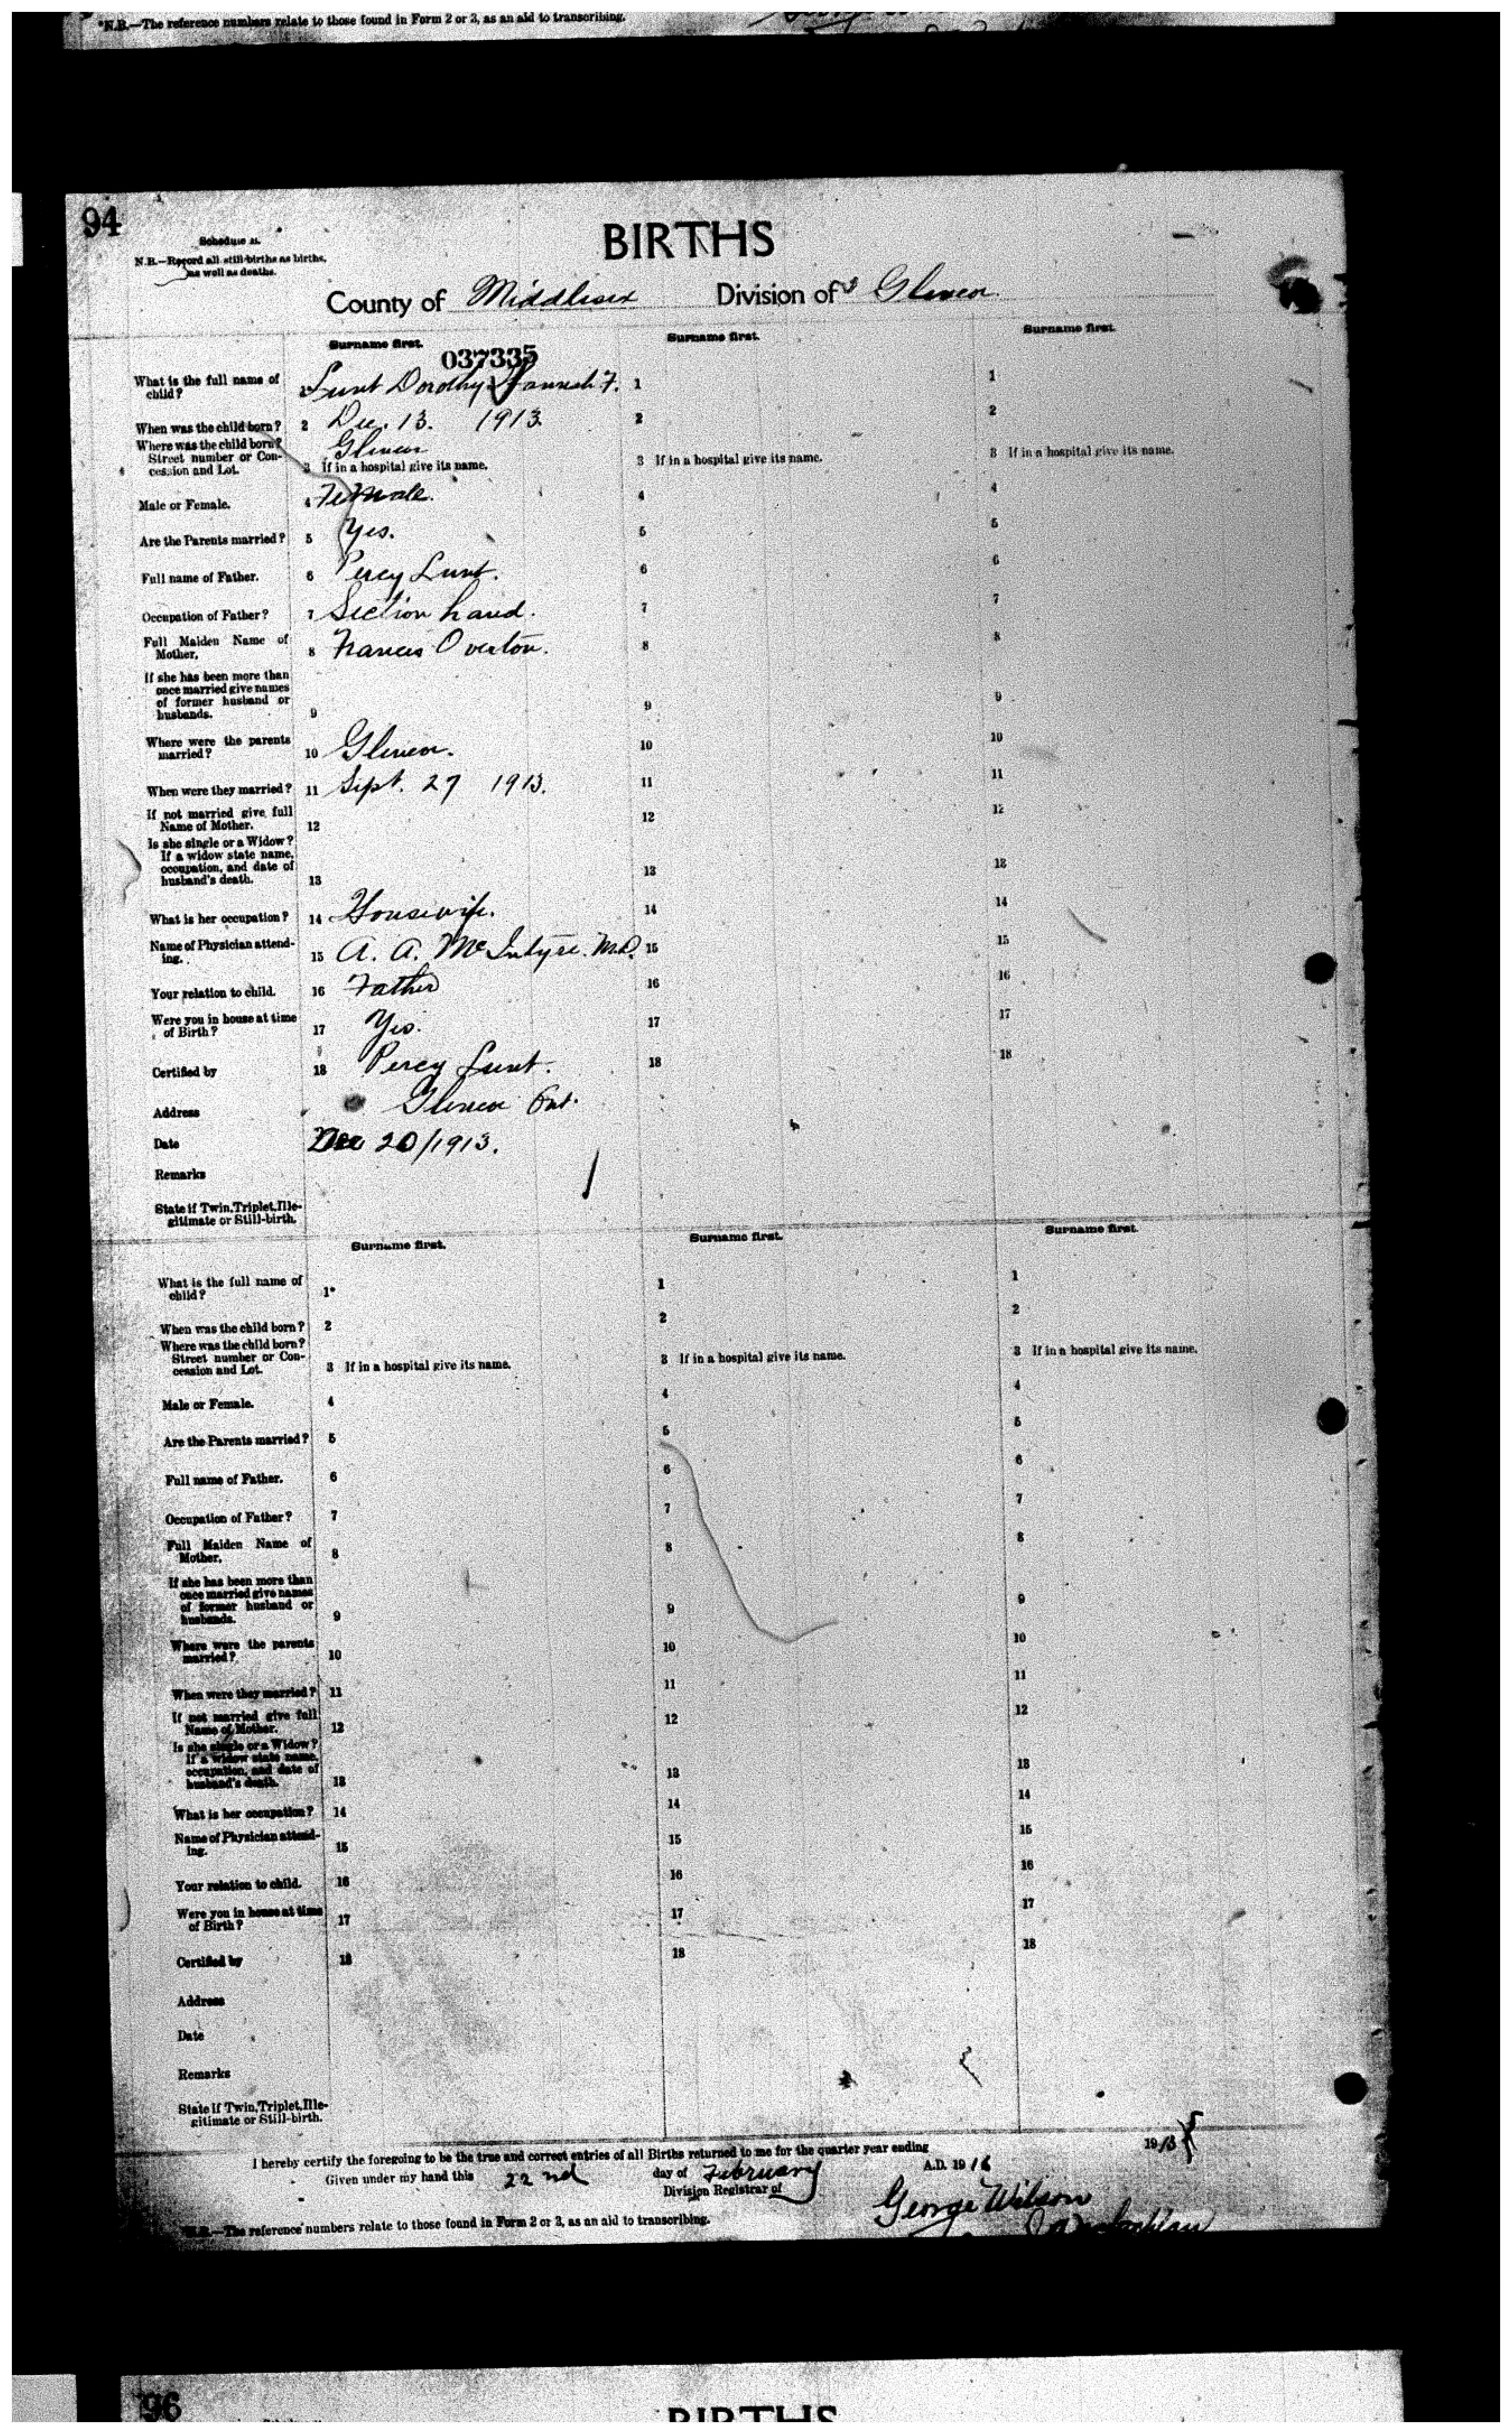 *N.B.—The reference numbers relate to those found in Form 2 or 3, as an aid to transcribing.
94
BIRTHS
Schedule A.
N.B.—Record all still-births as births,
as well as deaths.
County of Middlesex Division of Glencoe
Surname first. Surname first. Surname first.
037335
What is the full name of
child? Lunt Dorothy Hannah F. 1 1
When was the child born? 2 Dec. 13. 1913. 2 2
Where was the child born? Glencoe
Street number or Con-
cession and Lot. 3 If in a hospital give its name. 3 If in a hospital give its name. 3 If in a hospital give its name.
Male or Female. 4 Female. 4 4
Are the Parents married? 5 Yes. 5 5
Full name of Father. 6 Percy Lunt. 6 6
Occupation of Father? 7 Section hand. 7 7
Full Maiden Name of
Mother. 8 Frances Overton. 8 8
If she has been more than
once married give names
of former husband or
husbands. 9 9 9
Where were the parents
married? 10 Glencoe. 10 10
When were they married? 11 Sept. 27 1913. 11 11
If not married give full
Name of Mother. 12 12 12
Is she single or a Widow?
If a widow state name,
occupation, and date of
husband's death. 13 13 13
What is her occupation? 14 Housewife. 14 14
Name of Physician attend-
ing. 15 A. A. McIntyre. M.D. 15 15
Your relation to child. 16 Father 16 16
Were you in house at time
of Birth? 17 Yes. 17 17
Certified by 18 Percy Lunt. 18 18
Address Glencoe Ont.
Date Dec 20/1913.
Remarks
State if Twin, Triplet, Ille-
gitimate or Still-birth.
Surname first. Surname first. Surname first.
What is the full name of
child? 1 1 1
When was the child born? 2 2 2
Where was the child born?
Street number or Con-
cession and Lot. 3 If in a hospital give its name. 3 If in a hospital give its name. 3 If in a hospital give its name.
Male or Female. 4 4 4
Are the Parents married? 5 5 5
Full name of Father. 6 6 6
Occupation of Father? 7 7 7
Full Maiden Name of
Mother. 8 8 8
If she has been more than
once married give names
of former husband or
husbands. 9 9 9
Where were the parents
married? 10 10 10
When were they married? 11 11 11
If not married give full
Name of Mother. 12 12 12
Is she single or a Widow?
If a widow state name,
occupation, and date of
husband's death. 13 13 13
What is her occupation? 14 14 14
Name of Physician attend-
ing. 15 15 15
Your relation to child. 16 16 16
Were you in house at time
of Birth? 17 17 17
Certified by 18 18 18
Address
Date
Remarks
State if Twin, Triplet, Ille-
gitimate or Still-birth.
I hereby certify the foregoing to be the true and correct entries of all Births returned to me for the quarter year ending 1913
Given under my hand this 22nd day of February A.D. 1916
Division Registrar of George Wilson
N.B.—The reference numbers relate to those found in Form 2 or 3, as an aid to transcribing.
96
BIRTHS